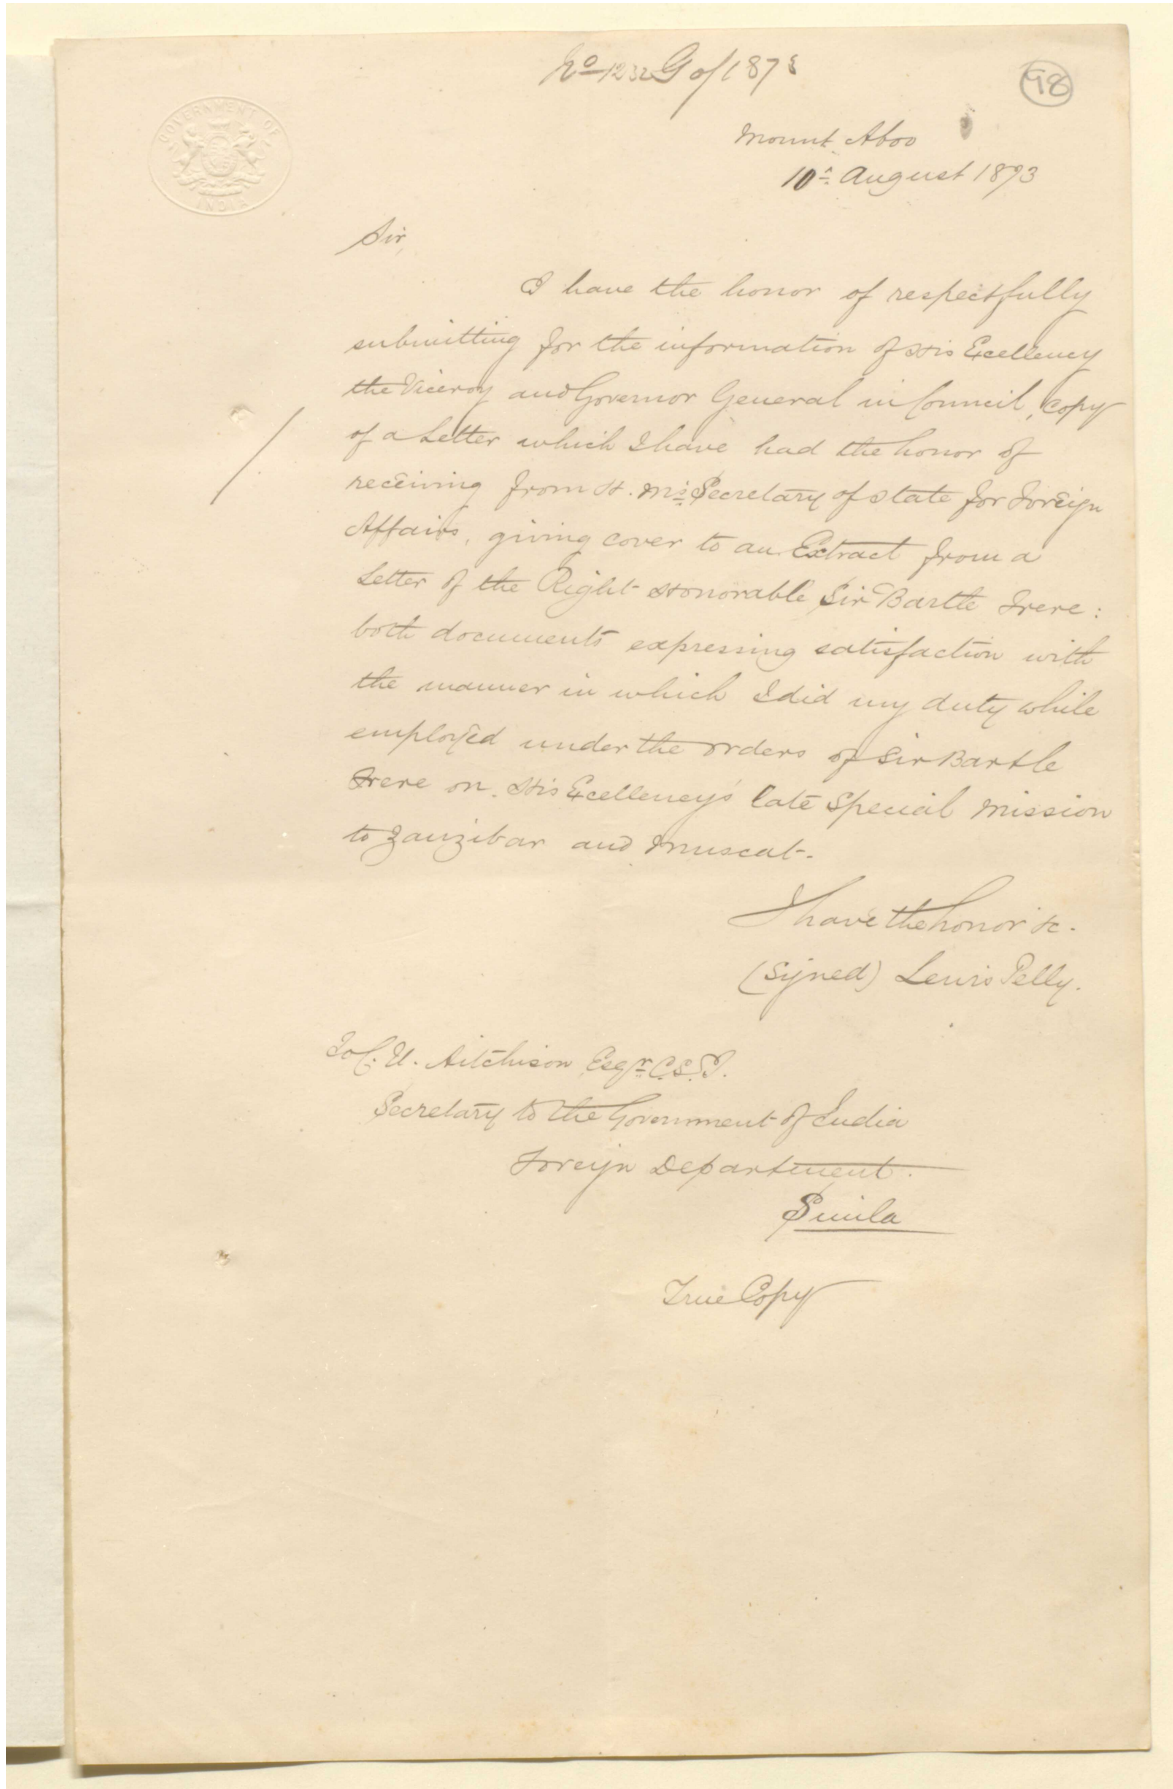 No 1232 G of 1873
98
GOVERNMENT OF
INDIA
Mount Aboo
10th August 1873
Sir,
I have the honor of respectfully
submitting for the information of His Excellency
the Viceroy and Governor General in Council, copy
of a Letter which I have had the honor of
receiving from H. M's Secretary of State for Foreign
Affairs, giving cover to an Extract from a
Letter of the Right Honorable Sir Bartle Frere:
both documents expressing satisfaction with
the manner in which I did my duty while
employed under the orders of Sir Bartle
Frere on His Excellency's late Special Mission
to Zanzibar and Muscat.
I have the honor &c.
(Signed) Lewis Pelly.
To C. U. Aitchison Esqr. C.S.I.
Secretary to the Government of India
Foreign Department.
Simla
True Copy